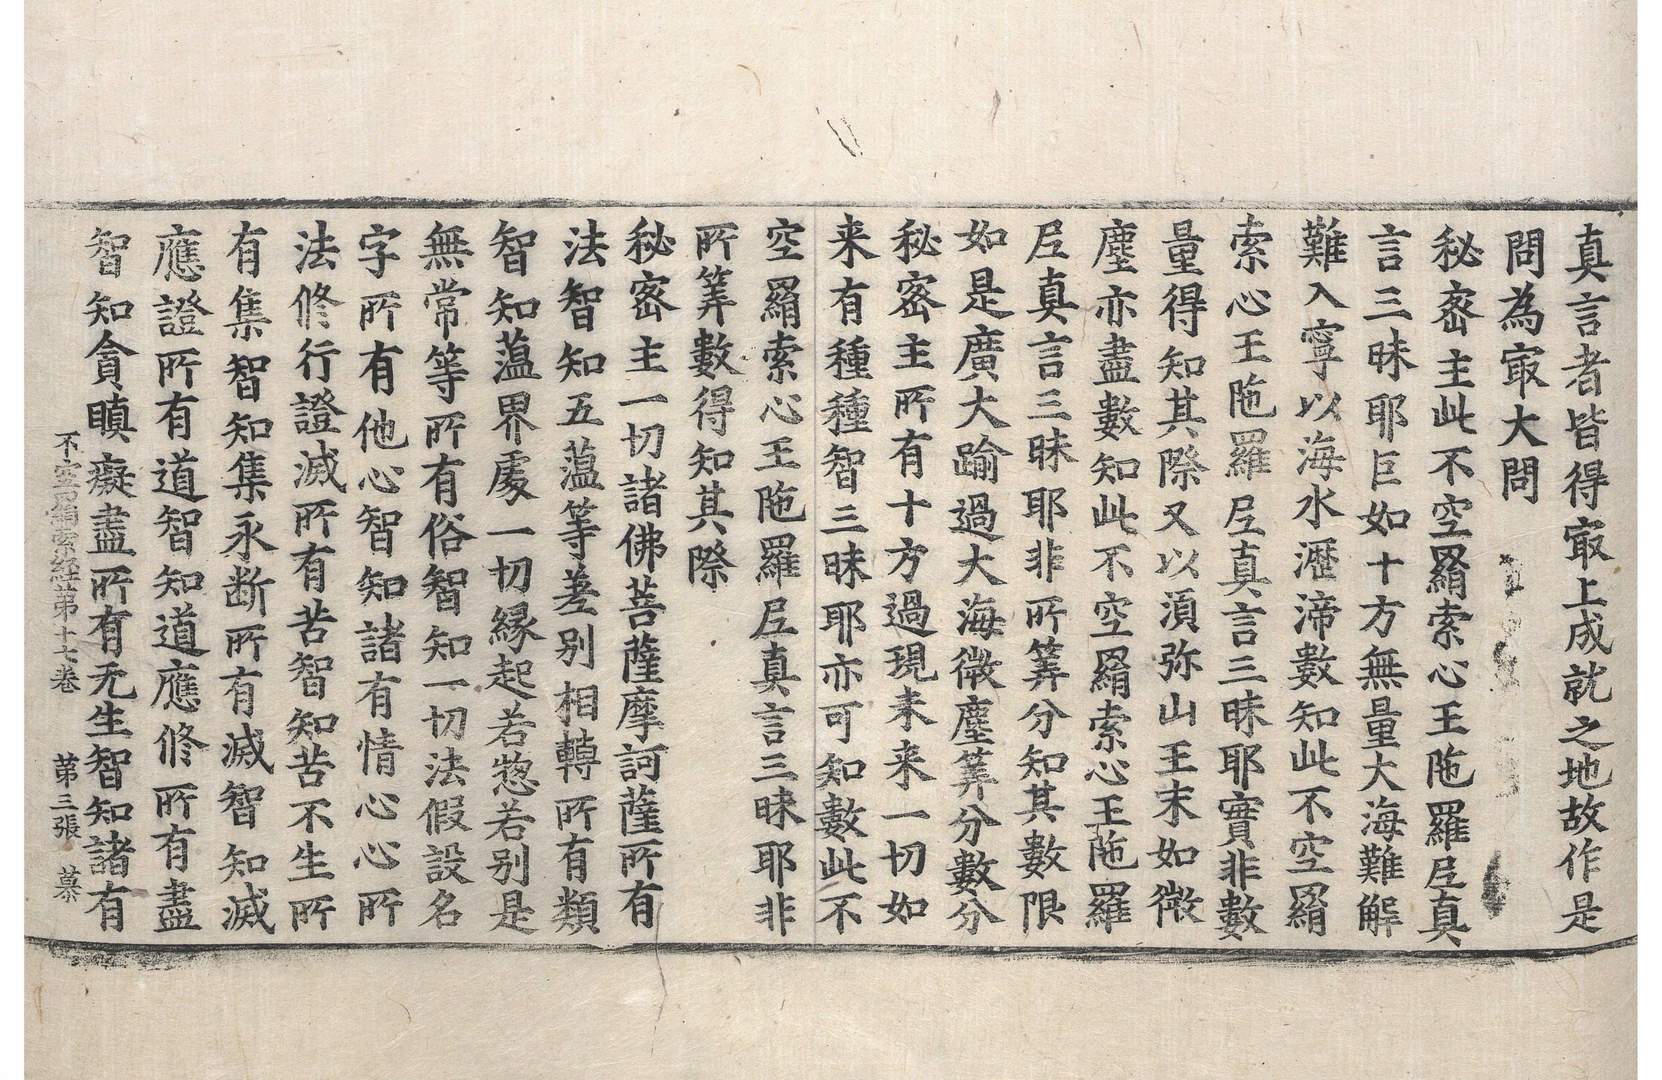 真言者皆得㝡上成就之地故作是
問為㝡大問
秘宻主此不空羂索心王陁羅𡰱真
言三昧耶巨如十方無量大海難解
難入寧以海水瀝渧數知此不空羂
索心王陁羅𡰱真言三昧耶實非數
量得知其際又以湏弥山王末如微
塵亦盡數知此不空羂索心王陁羅
𡰱真言三昧耶非所筭分知其數限
如是廣大踰過大海微塵筭分數分
秘宻主所有十方過現未来一切如
来有種種智三昧耶亦可知數此不
空羂索心王陁羅𡰱真言三昧耶非
所筭數得知其際
秘宻主一切諸佛菩薩摩訶薩所有
法智知五薀等差别相轉所有類
智知薀界處一切縁起若惣若别是
無常等所有俗智知一切法假設名
字所有他心智知諸有情心心所
法修行證滅所有苦智知苦不生所
有集智知集永断所有滅智知滅
應證所有道智知道應修所有盡
智知貪瞋癡盡所有无生智知諸有
不空羂索経第十七卷　第三張　慕